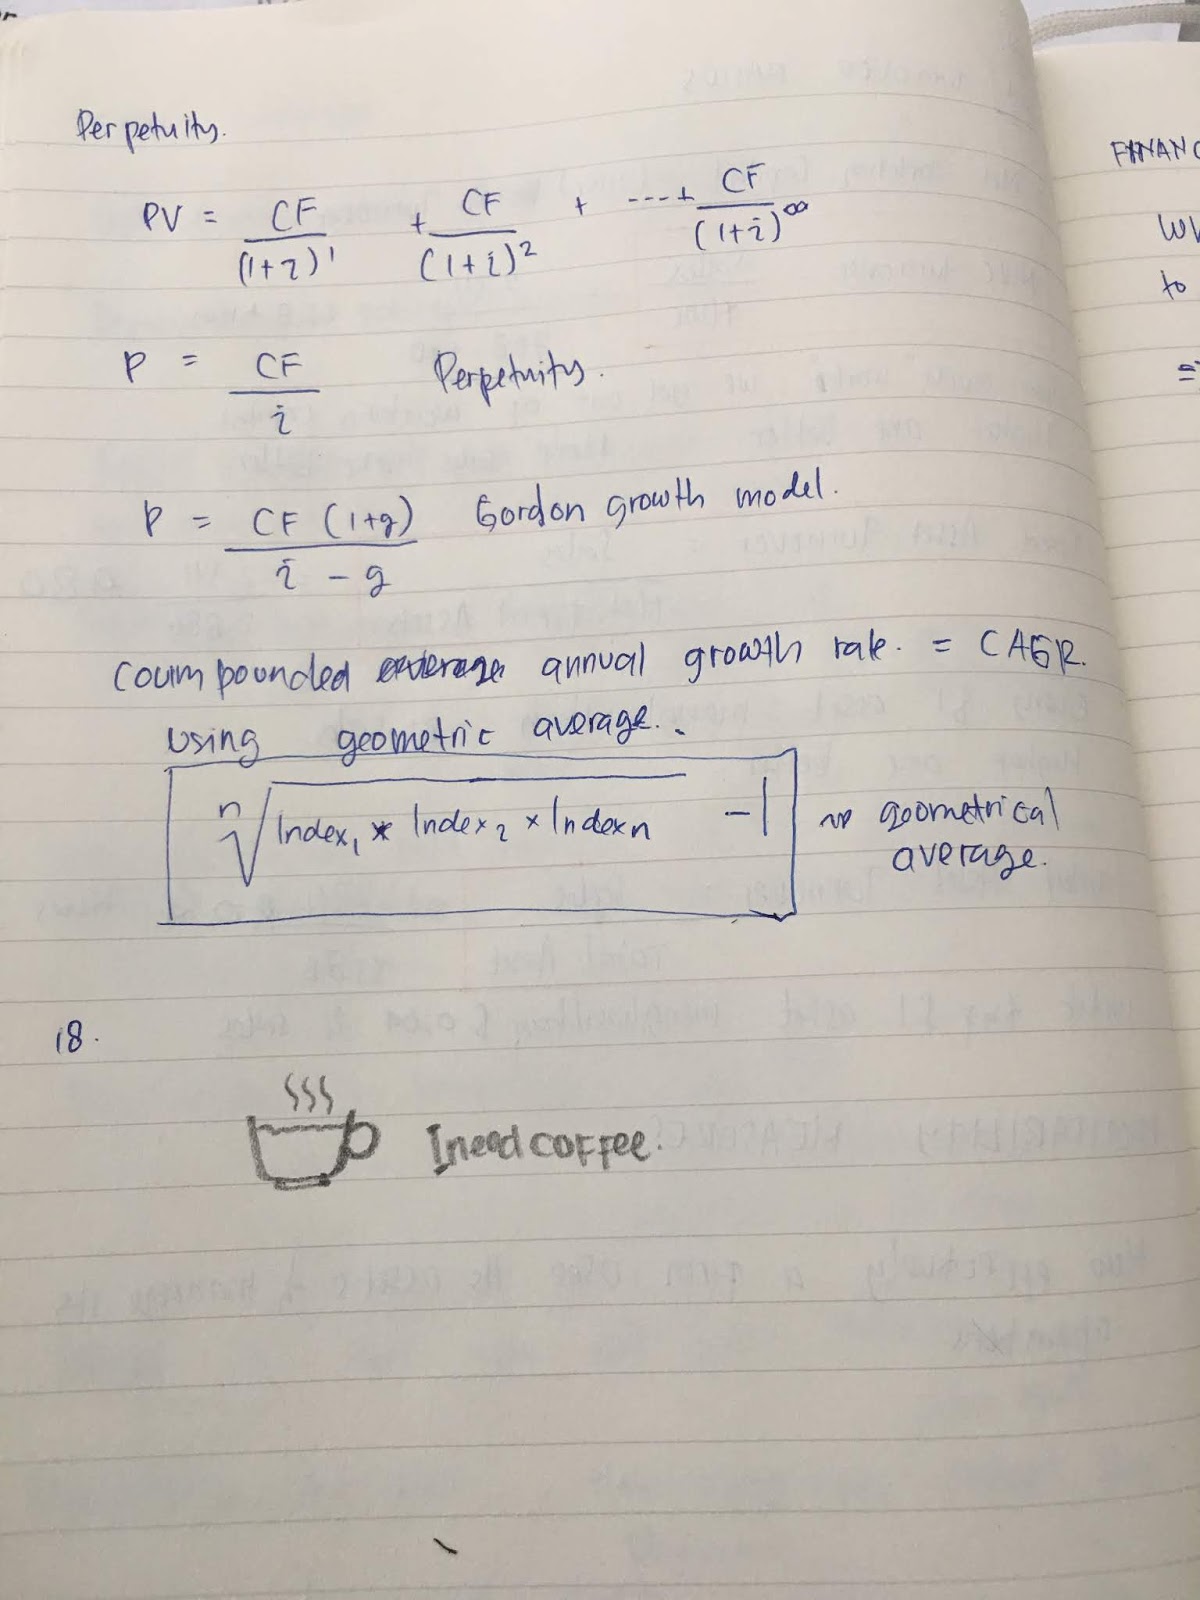 Perpetuity.
PV = CF/(1+i)^1 + CF/(1+i)^2 + ----+ CF/(1+i)^∞
P = CF/i Perpetuity.
P = CF (1+g)/i - g Gordon growth model.
Coumpounded average annual growth rate. = CAGR.
using geometric average.
n√Index1 * Index2 × Indexn -1 ~> geometrical
average.
18.
I need coffee.
FINANC
to